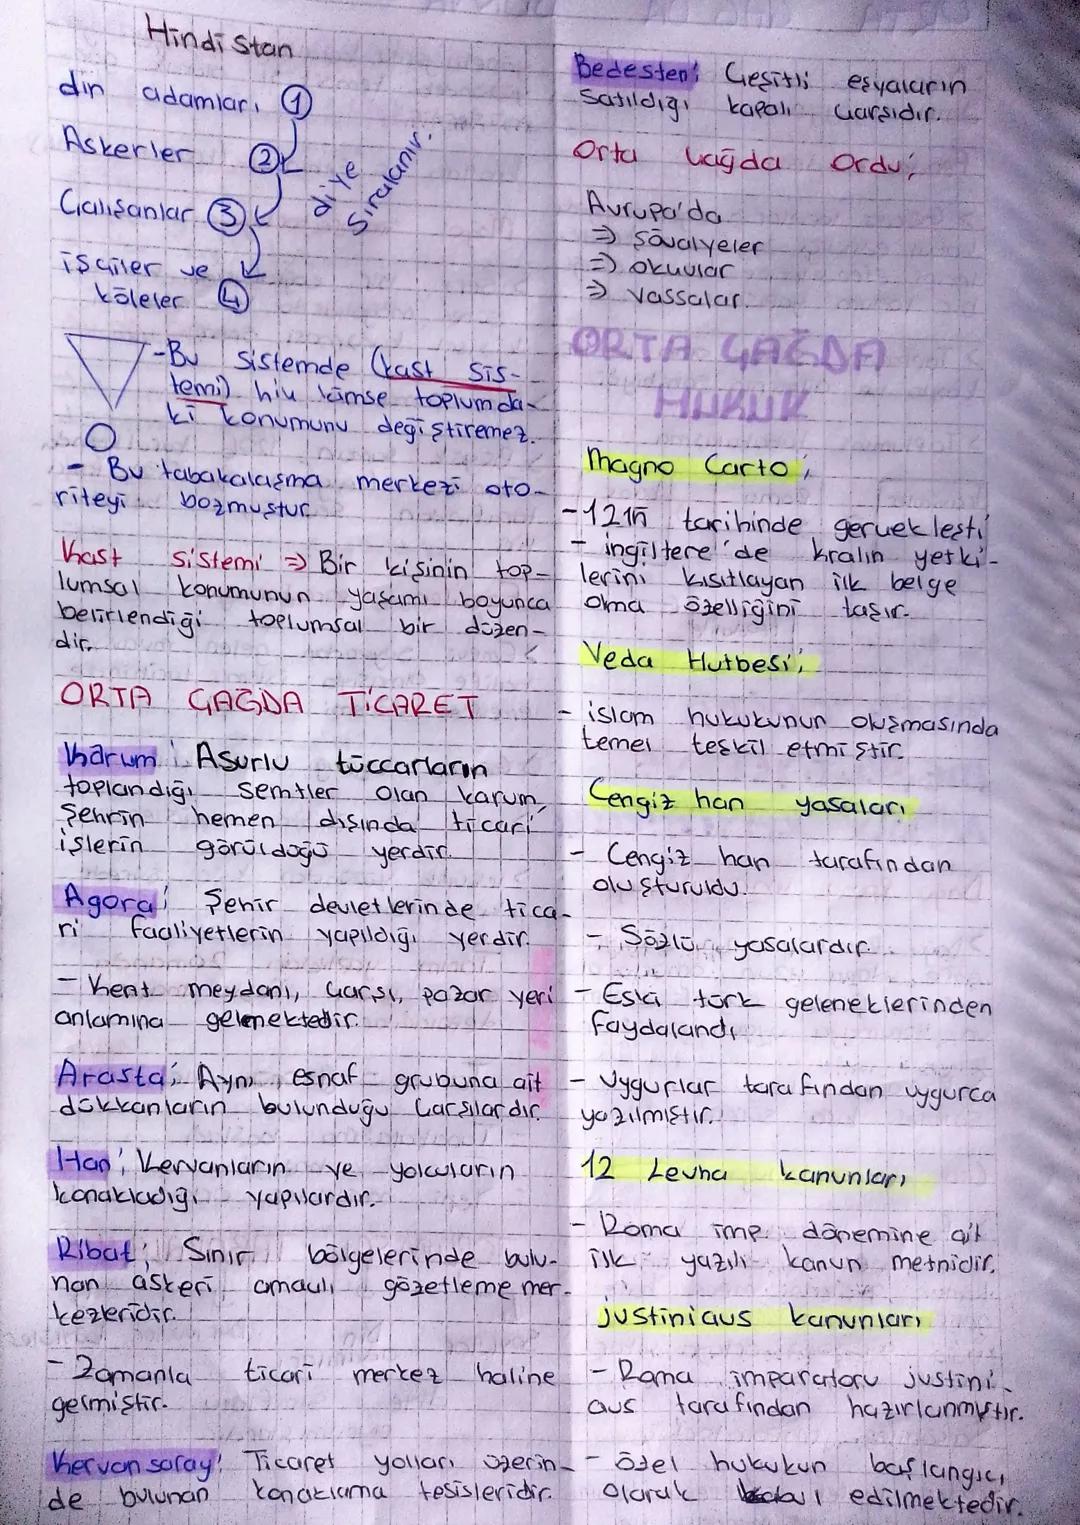 Hindistan
din adamları 1
Askerler 2
Çalışanlar 3
işçiler ve
köleler 4
diye
sıralanır.
-Bu sistemde (kast sis-
temi) hiç kimse toplumda-
ki konumunu değiştiremez.
- Bu tabakalaşma merkezi oto-
riteyi bozmuştur
Kast sistemi ⇒ Bir kişinin top-
lumsal konumunun yaşamı boyunca
belirlendiği toplumsal bir düzen-
dir.
ORTA ÇAĞDA TİCARET
Karum: Asurlu tüccarların
toplandığı semtler olan karum,
Şehrin hemen dışında ticari
işlerin görüldüğü yerdir.
Agora: Şehir devletlerinde tica-
ri faaliyetlerin yapıldığı yerdir.
- Kent meydanı, çarşı, pazar yeri
anlamına gelmektedir.
Arasta: Aynı esnaf grubuna ait
dükkanların bulunduğu çarşılardır.
Han: Kervanların ve yolcuların
konakladığı yapılardır.
Ribat: Sınır bölgelerinde bulu-
nan askeri amaçlı gözetleme mer-
kezleridir.
- Zamanla ticari merkez haline
gelmiştir.
Kervansaray: Ticaret yolları üzerin-
de bulunan konaklama tesisleridir.
Bedesten: Çeşitli eşyaların
satıldığı kapalı çarşıdır.
Orta çağda Ordu;
Avrupa'da
⇒ şövalyeler
⇒ okçular
⇒ vassalar.
ORTA ÇAĞDA
HUKUK
Magno Carto;
-1215 tarihinde gerçekleşti
- ingiltere'de kralın yetki-
lerini kısıtlayan ilk belge
olma özelliğini taşır.
Veda Hutbesi;
- islam hukukunun oluşmasında
temel teşkil etmiştir.
Cengiz han yasaları
- Cengiz han tarafından
oluşturuldu.
- Sözlü yasalardır
- Eski türk geleneklerinden
faydalandı
- Uygurlar tarafından uygurca
yazılmıştır.
12 Levha kanunları
- Roma imp. dönemine ait
ilk yazılı kanun metnidir.
justiniaus kanunları
- Roma imparatoru justini-
aus tarafından hazırlanmıştır.
- özel hukukun başlangıcı
olarak kabul edilmektedir.